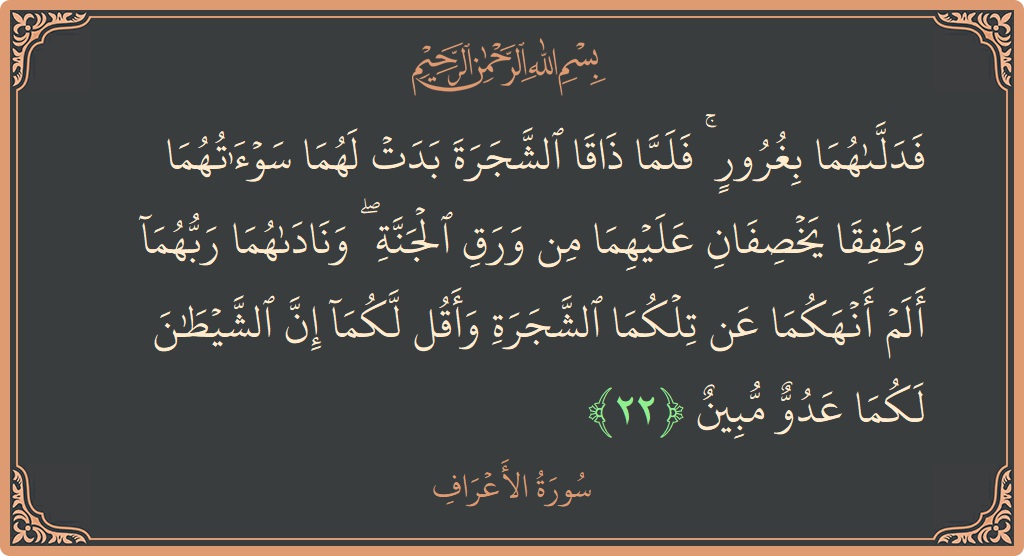 بِسْمِ اللَّهِ الرَّحْمَٰنِ الرَّحِيمِ
فَدَلَّىٰهُمَا بِغُرُورٍ ۚ فَلَمَّا ذَاقَا ٱلشَّجَرَةَ بَدَتْ لَهُمَا سَوْءَٰتُهُمَا
وَطَفِقَا يَخْصِفَانِ عَلَيْهِمَا مِن وَرَقِ ٱلْجَنَّةِ ۖ وَنَادَىٰهُمَا رَبُّهُمَآ
أَلَمْ أَنْهَكُمَا عَن تِلْكُمَا ٱلشَّجَرَةِ وَأَقُل لَّكُمَآ إِنَّ ٱلشَّيْطَٰنَ
لَكُمَا عَدُوٌّ مُّبِينٌ ﴿٢٢﴾
سُورَةُ الأَعْرَافِ